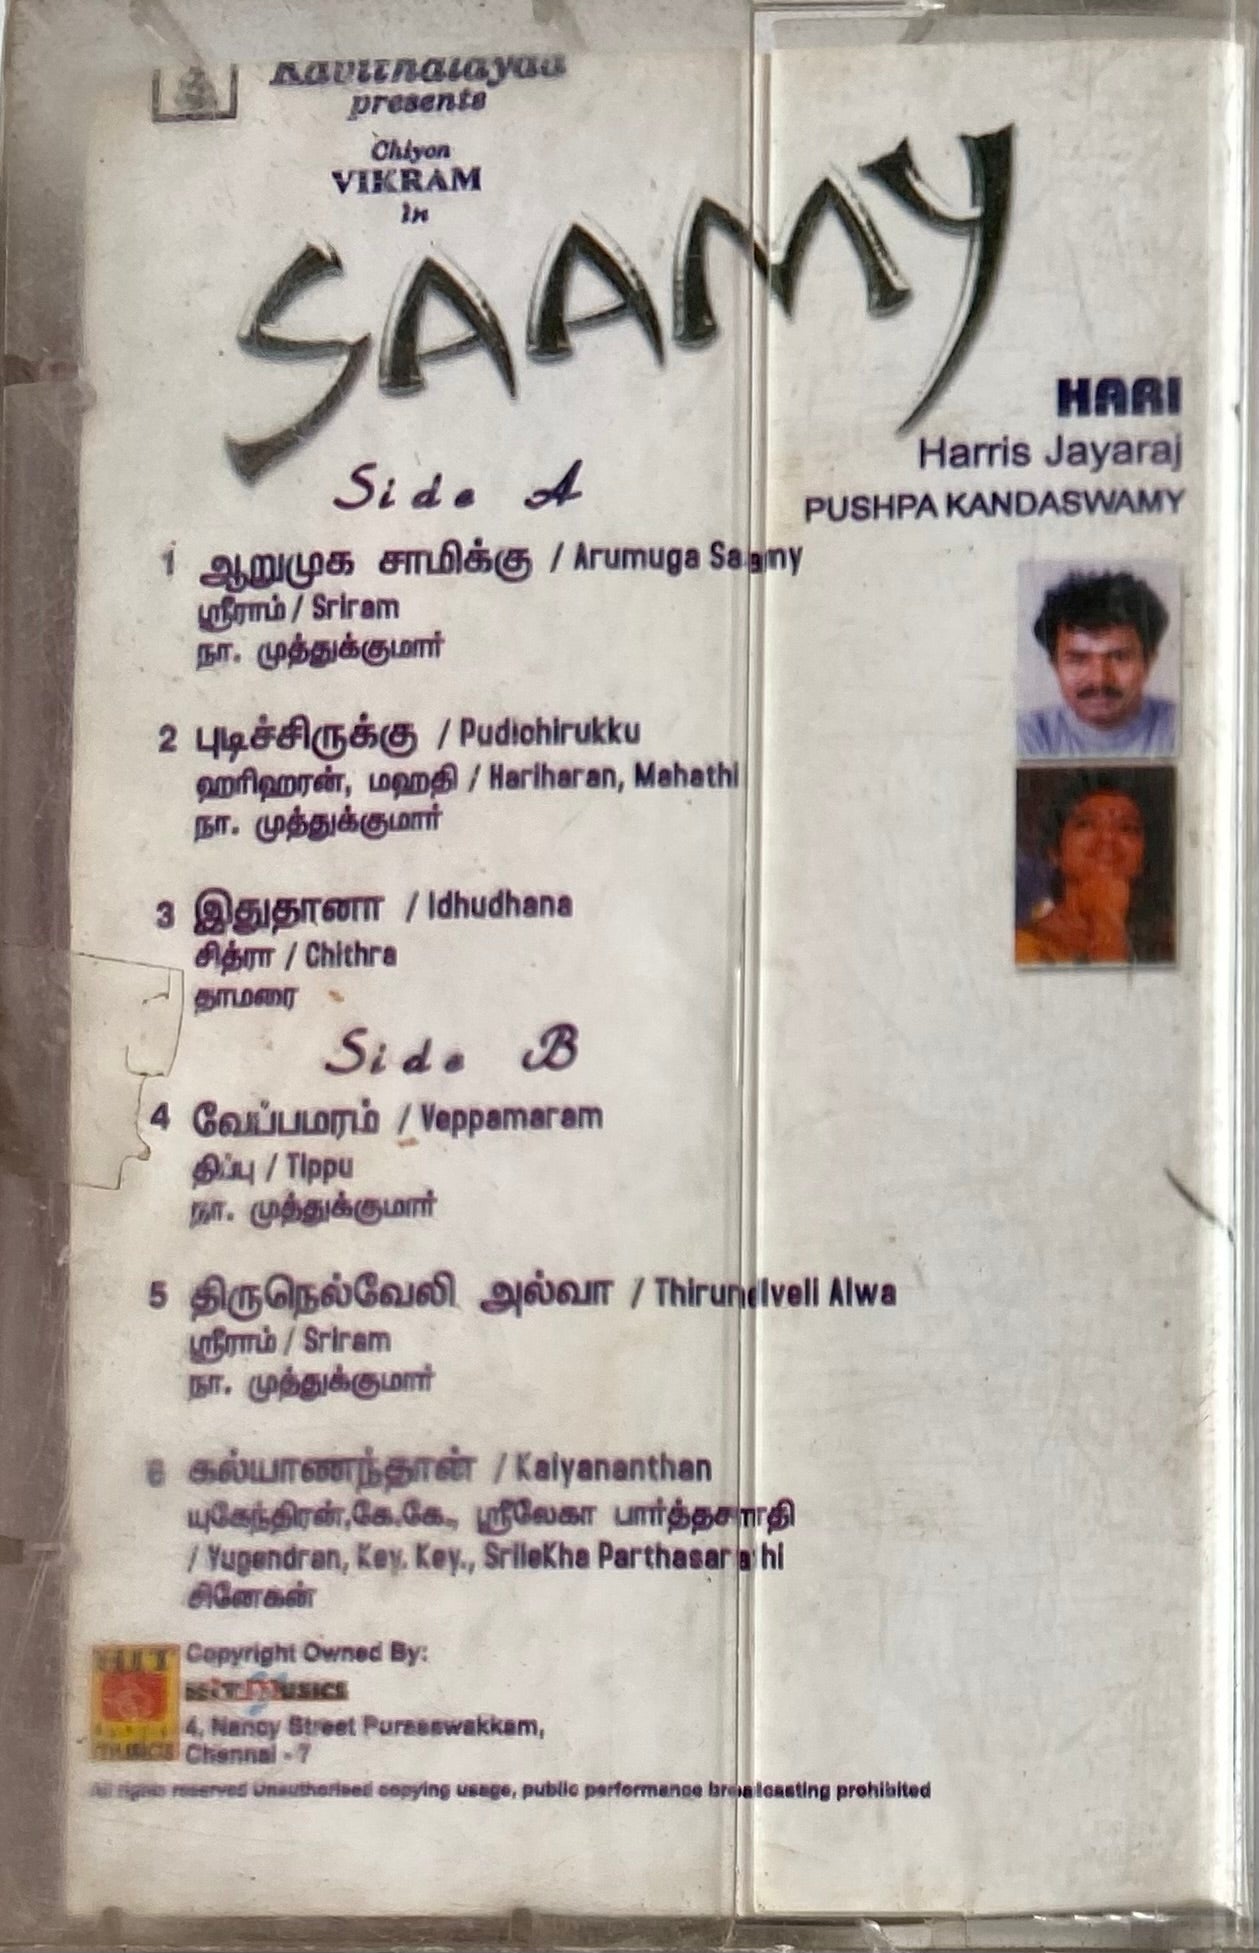 Kavithalayaa
presents
Chiyon
VIKRAM
in
SAAMY
HARI
Harris Jayaraj
PUSHPA KANDASWAMY
Side A
1 ஆறுமுக சாமிக்கு / Arumuga Saamy
ஸ்ரீராம் / Sriram
நா. முத்துக்குமார்
2 புடிச்சிருக்கு / Pudichirukku
ஹரிஹரன், மஹதி / Hariharan, Mahathi
நா. முத்துக்குமார்
3 இதுதானா / Idhudhana
சித்ரா / Chithra
தாமரை
Side B
4 வேப்பமரம் / Veppamaram
திப்பு / Tippu
நா. முத்துக்குமார்
5 திருநெல்வேலி அல்வா / Thirunelveli Alwa
ஸ்ரீராம் / Sriram
நா. முத்துக்குமார்
6 கல்யாணந்தான் / Kalyananthan
யுகேந்திரன்,கே.கே., ஸ்ரீலேகா பார்த்தசாரதி
/ Yugendran, Key. Key., SrileKha Parthasarathi
சினேகன்
HIT
MUSICS
Copyright Owned By:
HIT MUSICS
4, Nancy Street Purasawakkam,
Chennai - 7
All rights reserved Unauthorised copying usage, public performance broadcasting prohibited